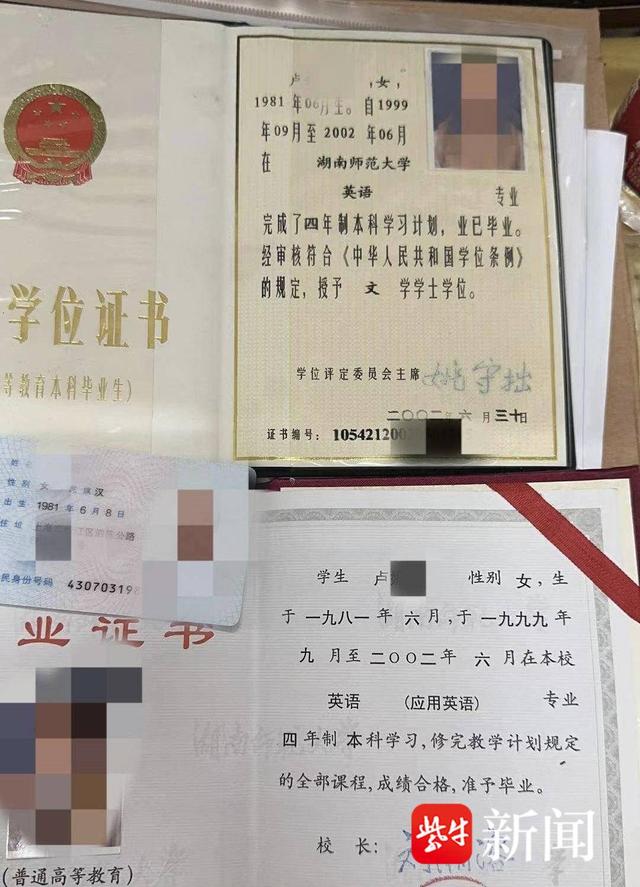 学位证书
等教育本科毕业生)
卢 ,女,
1981 年06月生。自1999
年09月至 2002 年06月
在 湖南师范大学
英语 专业
完成了四年制本科学习计划,业已毕业。
经审核符合《中华人民共和国学位条例》
的规定,授予 文 学学士学位。
学位评定委员会主席
二〇〇二年 六 月 三十日
证书编号: 1054212002
姓名
性别 女 民族 汉
出生 1981 年 6 月 8 日
住址
民身份号码 43070319
业证书
(普通高等教育)
学生 卢 性别 女,生
于 一九八一 年 六 月,于 一九九九 年
九 月至 二〇〇二 年 六 月在本校
英语 (应用英语) 专业
四 年制 本 科学习,修完教学计划规定
的全部课程,成绩合格,准予毕业。
校 长:
紫牛新闻